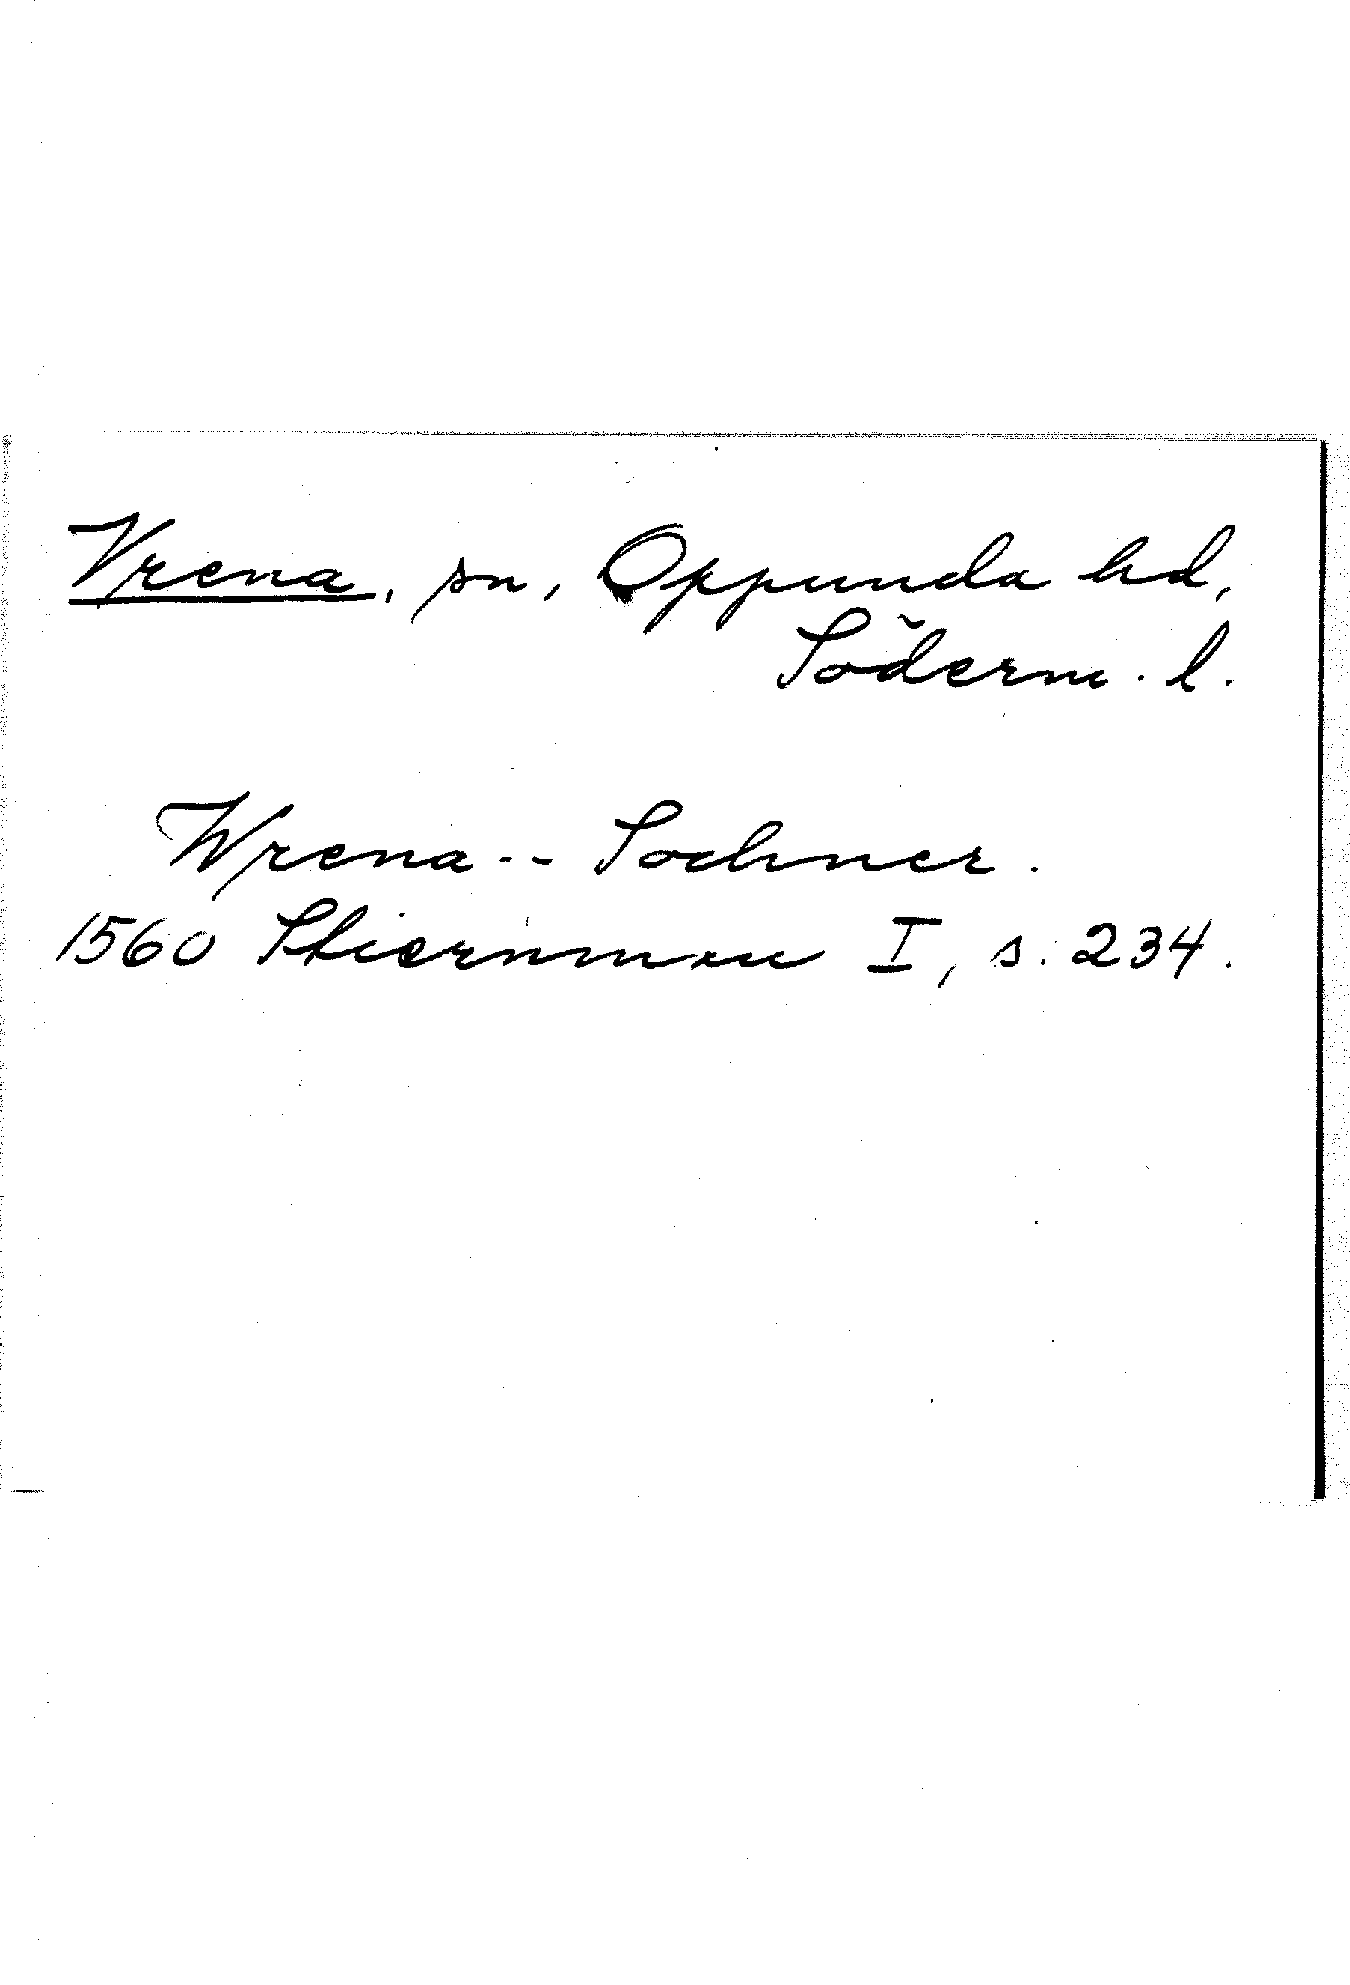 Vrena, sn, Oppunda hd,
Söderm. l.
Wrena -- Sochner.
1560 Stiernman I, s. 234.